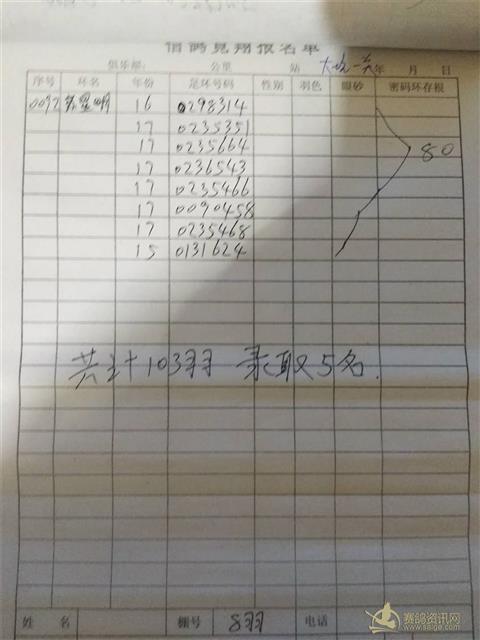 信鸽竞翔报名单
俱乐部: 公里 站 年 月 日
序号 环名 年份 足环号码 性别 羽色 眼砂 密码环存根
0092 16 0298314
17 0235351
17 0235664 80
17 0236543
17 0235466
17 0090458
17 0235468
15 0131624
共计103羽 录取5名.
姓 名 棚号 8羽 电话
赛鸽资讯网
www.saige.com